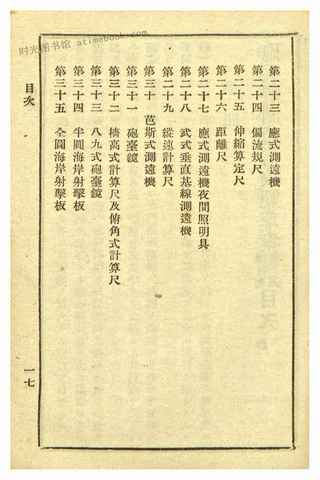 时光图书馆 atimebook.com
第二十三 應式測遠機
第二十四 偏流規尺
第二十五 伸縮算定尺
第二十六 距離尺
第二十七 應式測遠機夜間照明具
第二十八 武式垂直基線測遠機
第二十九 縱速計算尺
第三十 芭斯式測遠機
第三十一 砲臺鏡
第三十二 檣高式計算尺及俯角式計算尺
第三十三 八九式砲臺鏡
第三十四 半圓海岸射擊板
第三十五 全圓海岸射擊板
目次
一七